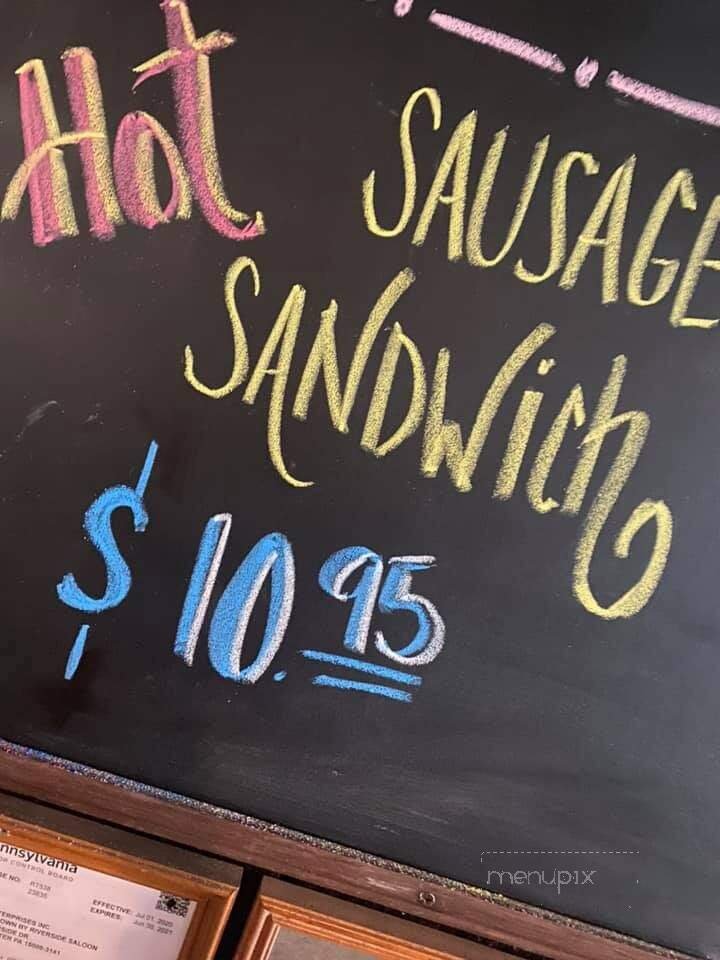 Hot SAUSAGE
SANDWich
$10.95
nnsylvania
OR CONTROL BOARD
SE NO: R7538
23835
EFFECTIVE: Jul 01, 2020
EXPIRES: Jun 30, 2021
TERPRISES INC
OWN BY RIVERSIDE SALOON
SIDE DR
TER PA 15009-3141
menupix